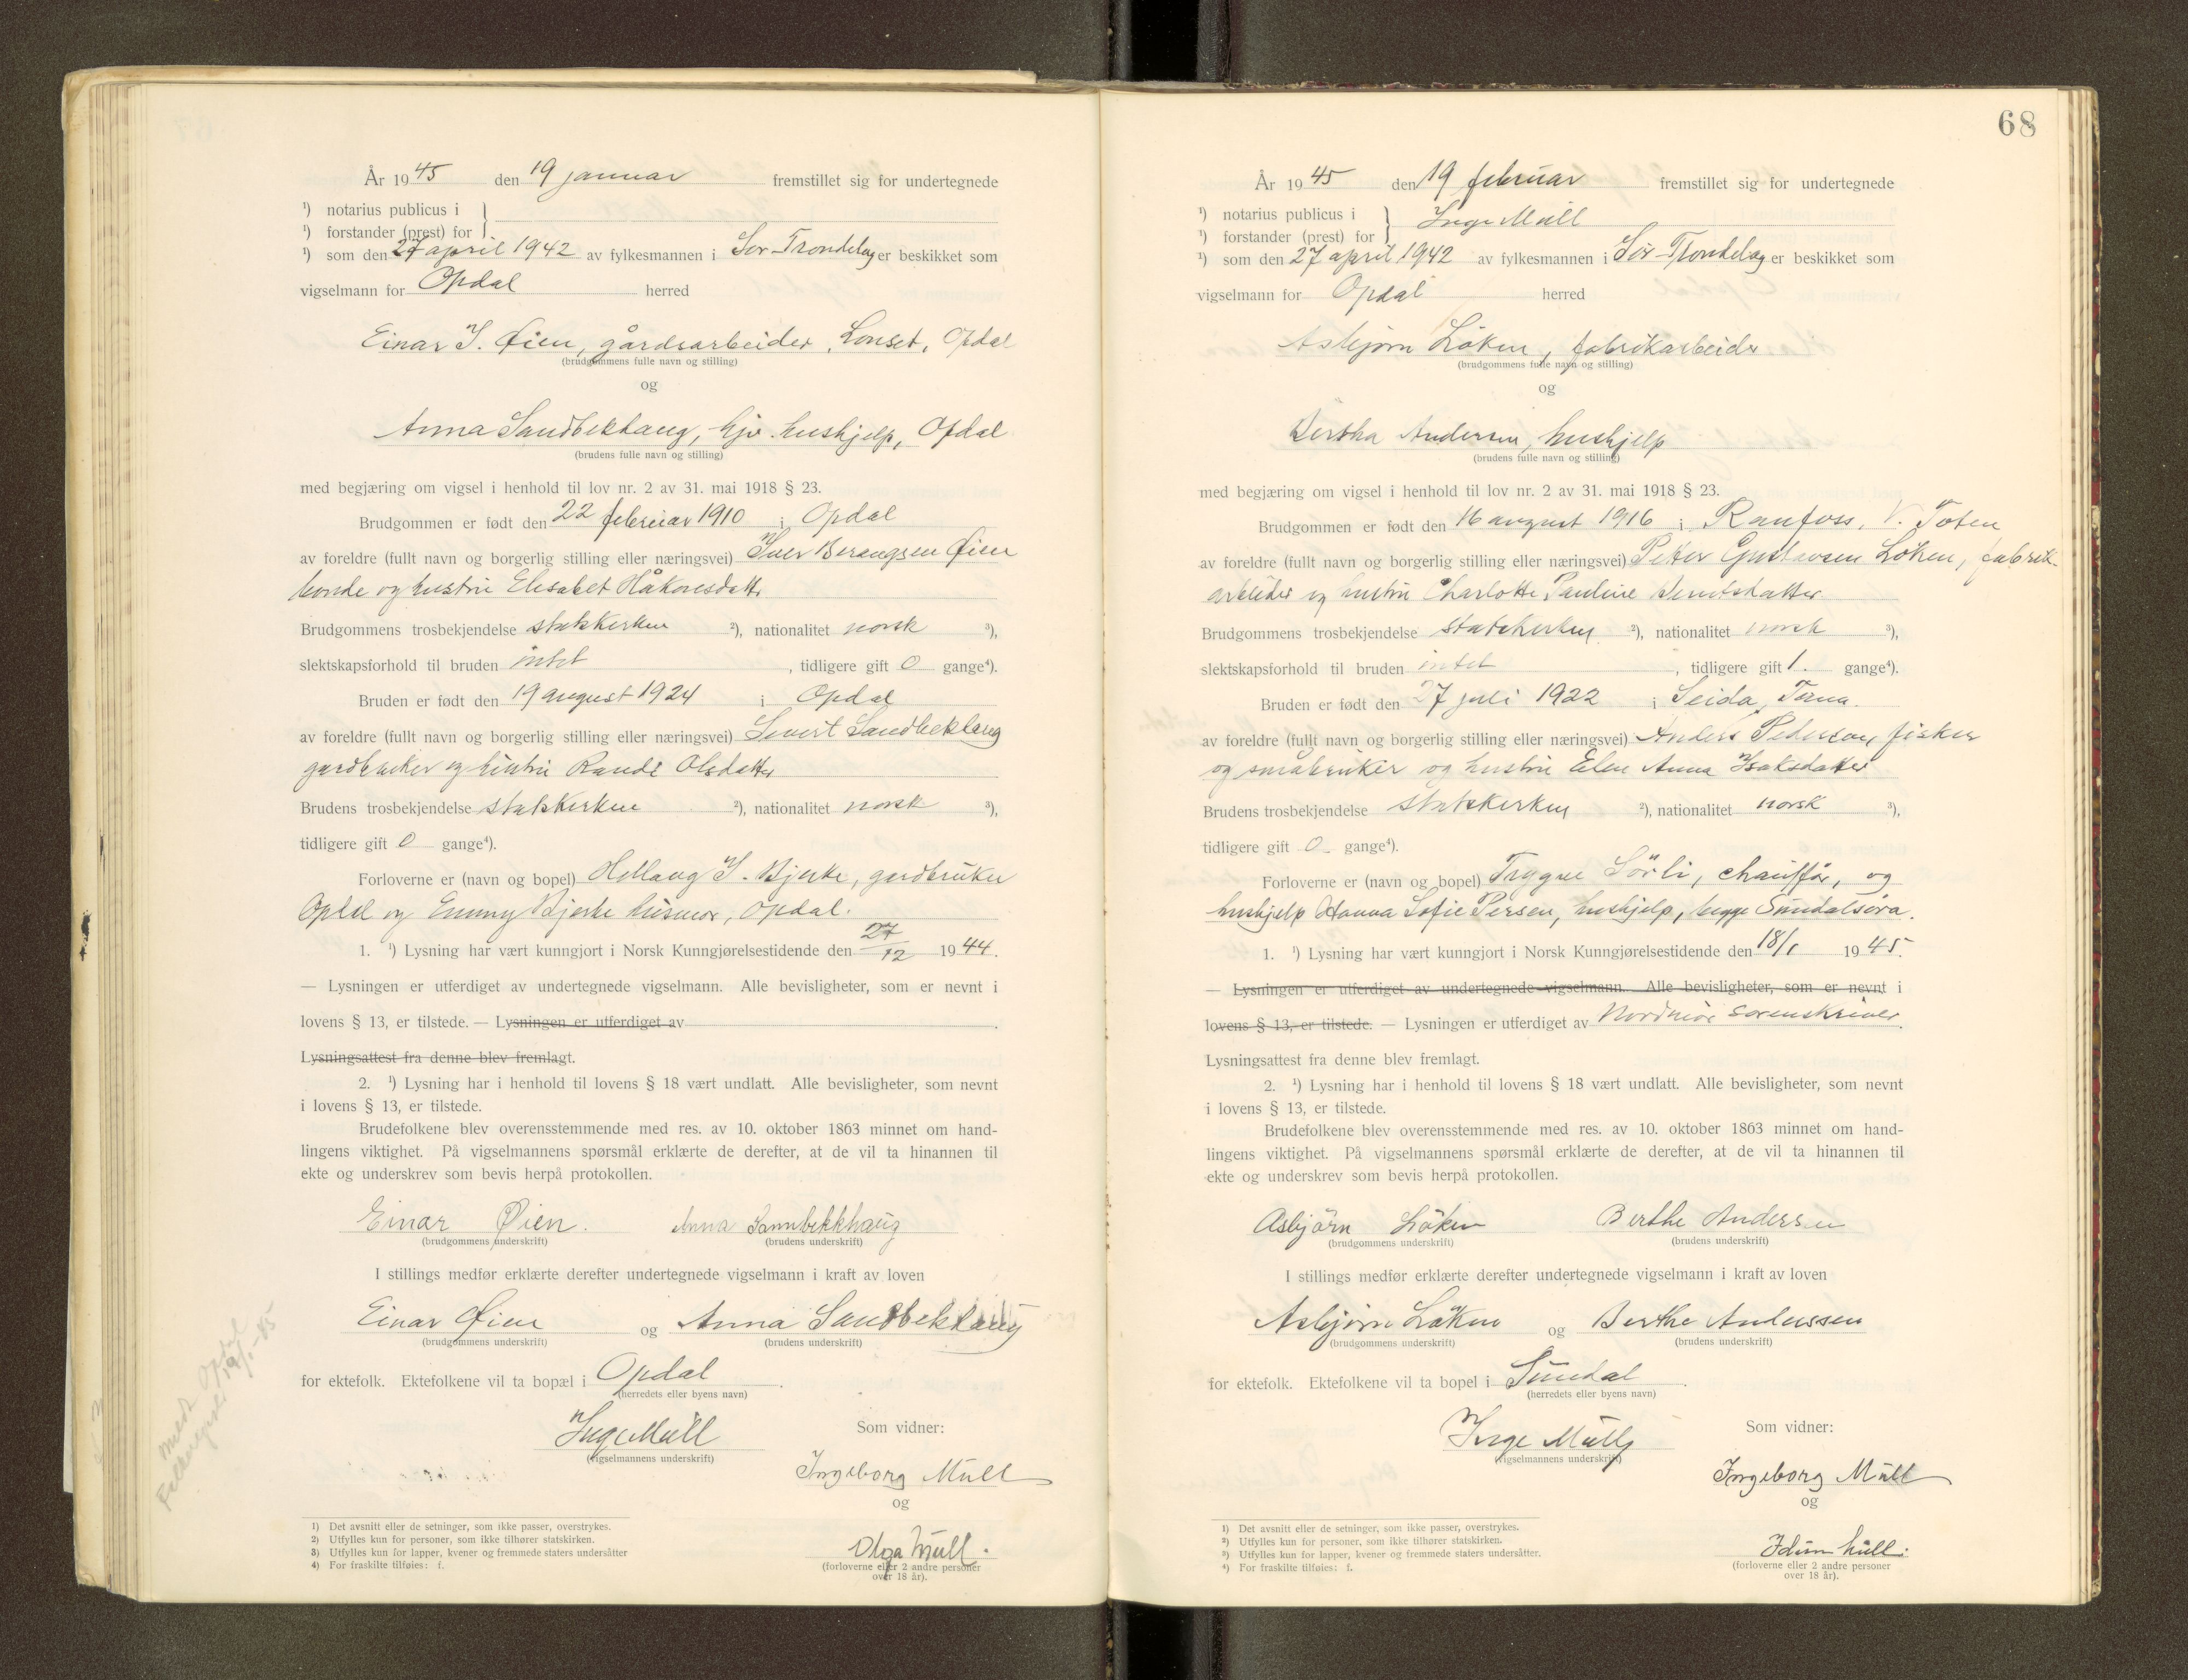 År 1945 den 19 januar fremstillet sig for undertegnede
¹) notarius publicus i
¹) forstander (prest) for
¹) som den 27 april 1942 av fylkesmannen i Sør-Trøndelag er beskikket som
vigselmann for Opdal herred
Einar I. Øien, gårdsarbeider, Lønset, Opdal
(brudgommens fulle navn og stilling)
og
Anna Sandbekhaug, hjv. hushjelp, Opdal
(brudens fulle navn og stilling)
med begjæring om vigsel i henhold til lov nr. 2 av 31. mai 1918 § 23.
Brudgommen er født den 22 februar 1910 i Opdal
av foreldre (fullt navn og borgerlig stilling eller næringsvei) Iver Øien
bonde og hustru Elisabet Håkonsdatter
Brudgommens trosbekjendelse statskirken ²), nationalitet norsk ³),
slektskapsforhold til bruden intet, tidligere gift 0 gange⁴).
Bruden er født den 19 august 1924 i Opdal
av foreldre (fullt navn og borgerlig stilling eller næringsvei) Sivert Sandbekhaug
gardbruker og hustru Randi Olsdatter
Brudens trosbekjendelse statskirken ²), nationalitet norsk ³),
tidligere gift 0 gange⁴).
Forloverne er (navn og bopel) I. Bjerke, gardbruker
Opdal og Emmy Bjerke husmor, Opdal.
1. ¹) Lysning har vært kunngjort i Norsk Kunngjørelsestidende den 27/12 1944.
— Lysningen er utferdiget av undertegnede vigselmann. Alle bevisligheter, som er nevnt i
lovens § 13, er tilstede. — Lysningen er utferdiget av
Lysningsattest fra denne blev fremlagt.
2. ¹) Lysning har i henhold til lovens § 18 vært undlatt. Alle bevisligheter, som nevnt
i lovens § 13, er tilstede.
Brudefolkene blev overensstemmende med res. av 10. oktober 1863 minnet om hand-
lingens viktighet. På vigselmannens spørsmål erklærte de derefter, at de vil ta hinannen til
ekte og underskrev som bevis herpå protokollen.
Einar Øien. Anna Sannbekkhaug
(brudgommens underskrift) (brudens underskrift)
I stillings medfør erklærte derefter undertegnede vigselmann i kraft av loven
Einar Øien og Anna Sandbekhaug
(brudgommens underskrift) (brudens underskrift)
for ektefolk. Ektefolkene vil ta bopæl i Opdal.
(herredets eller byens navn)
Inge Müll
(vigselmannens underskrift)
Som vidner:
Ingeborg Müll
og
Olga Müll.
(forloverne eller 2 andre personer
over 18 år).
1) Det avsnitt eller de setninger, som ikke passer, overstrykes.
2) Utfylles kun for personer, som ikke tilhører statskirken.
3) Utfylles kun for lapper, kvener og fremmede staters undersåtter
4) For fraskilte tilføies: f.
68
År 1945 den 19 februar fremstillet sig for undertegnede
¹) notarius publicus i
¹) forstander (prest) for
Inge Müll
¹) som den 27 april 1942 av fylkesmannen i Sør-Trøndelag er beskikket som
vigselmann for Opdal herred
Asbjørn Löken, fabrikarbeider
(brudgommens fulle navn og stilling)
og
Bertha Andersen, hushjelp
(brudens fulle navn og stilling)
med begjæring om vigsel i henhold til lov nr. 2 av 31. mai 1918 § 23.
Brudgommen er født den 16 august 1916 i Raufoss, V. Toten
av foreldre (fullt navn og borgerlig stilling eller næringsvei) Peter Gustavsen Löken, fabrik-
arbeider og hustru Charlotte Pauline
Brudgommens trosbekjendelse statskirken ²), nationalitet norsk ³),
slektskapsforhold til bruden intet, tidligere gift 1. gange⁴).
Bruden er født den 27 juli 1922 i Seida, Tana.
av foreldre (fullt navn og borgerlig stilling eller næringsvei) Anders Pedersen, fisker
og småbruker og hustru Elen Anna Isaksdatter
Brudens trosbekjendelse statskirken ²), nationalitet norsk ³),
tidligere gift 0 gange⁴).
Forloverne er (navn og bopel) Trygve Sörli, chauffør, og
hushjelp Hanna Sofie Persen, hushjelp, begge Sundalsöra.
1. ¹) Lysning har vært kunngjort i Norsk Kunngjørelsestidende den 18/1 1945.
— Lysningen er utferdiget av undertegnede vigselmann. Alle bevisligheter, som er nevnt i
lovens § 13, er tilstede. — Lysningen er utferdiget av Nordmøre sorenskriver.
Lysningsattest fra denne blev fremlagt.
2. ¹) Lysning har i henhold til lovens § 18 vært undlatt. Alle bevisligheter, som nevnt
i lovens § 13, er tilstede.
Brudefolkene blev overensstemmende med res. av 10. oktober 1863 minnet om hand-
lingens viktighet. På vigselmannens spørsmål erklærte de derefter, at de vil ta hinannen til
ekte og underskrev som bevis herpå protokollen.
Asbjörn Löken Berthe Andersen
(brudgommens underskrift) (brudens underskrift)
I stillings medfør erklærte derefter undertegnede vigselmann i kraft av loven
Asbjørn Löken og Berthe Anderssen
(brudgommens underskrift) (brudens underskrift)
for ektefolk. Ektefolkene vil ta bopel i Sundal.
(herredets eller byens navn)
Inge Müll
(vigselmannens underskrift)
Som vidner:
Ingeborg Müll
og
Idun Müll.
(forloverne eller 2 andre personer
over 18 år).
1) Det avsnitt eller de setninger, som ikke passer, overstrykes.
2) Utfylles kun for personer, som ikke tilhører statskirken.
3) Utfylles kun for lapper, kvener og fremmede staters undersåtter.
4) For fraskilte tilføies: f.